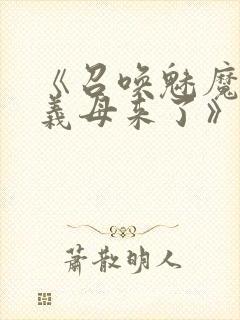 《召唤魅魔
義母来了》
蕭散明人